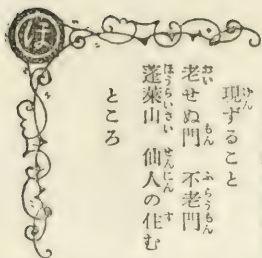 ほ
現ずること
老せぬ門 不老門
蓬萊山 仙人の住む
ところ